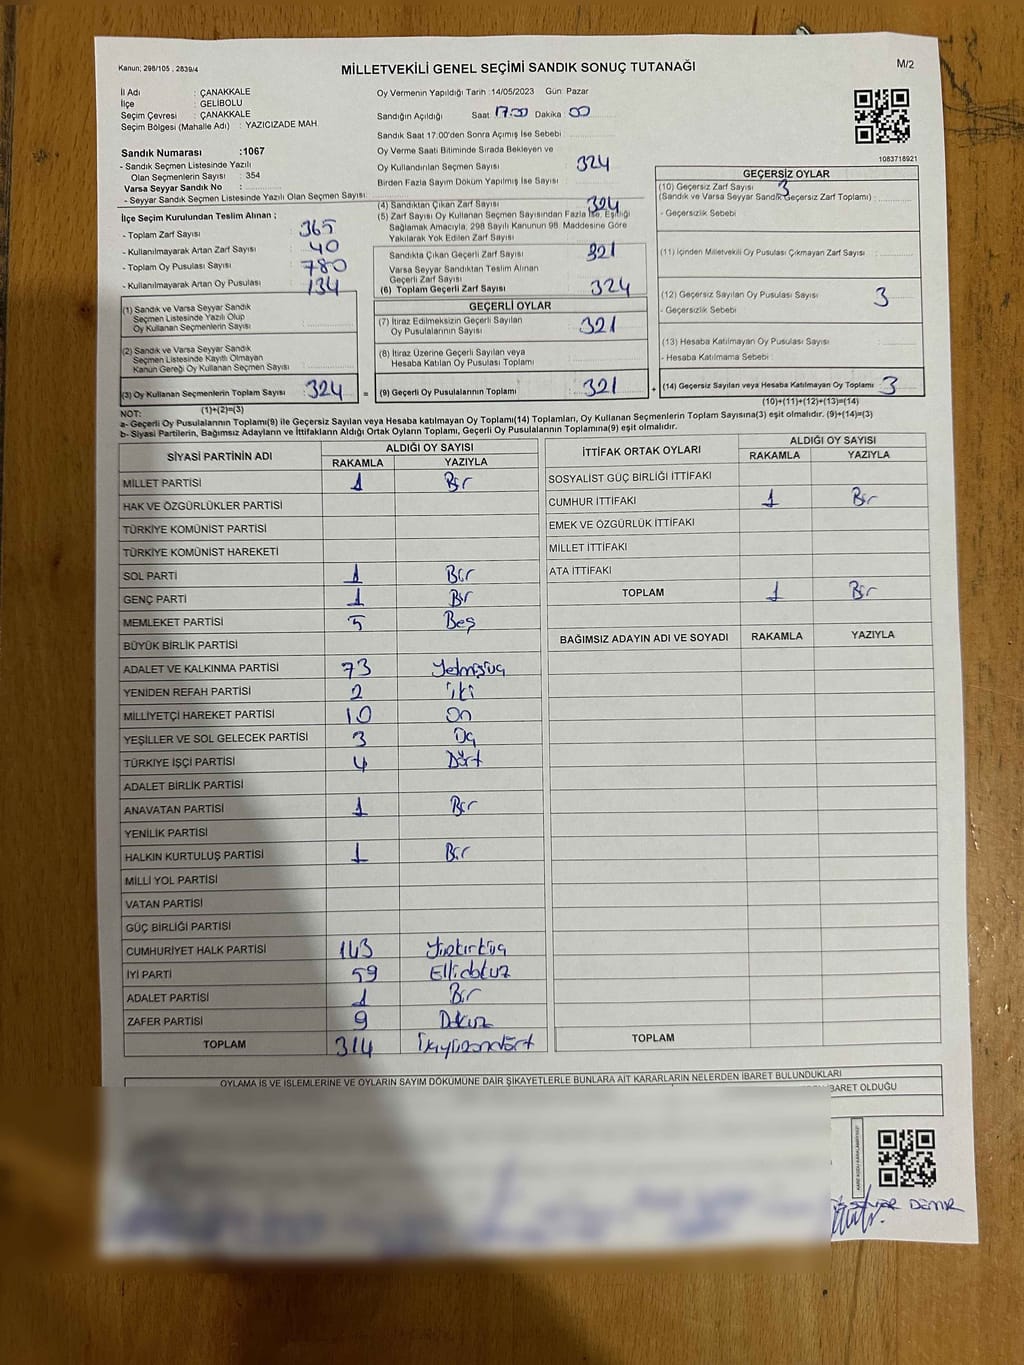 Kanun; 298/105 , 2839/4
MİLLETVEKİLİ GENEL SEÇİMİ SANDIK SONUÇ TUTANAĞI
M/2
İl Adı : ÇANAKKALE
İlçe : GELİBOLU
Seçim Çevresi : ÇANAKKALE
Seçim Bölgesi (Mahalle Adı) : YAZICIZADE MAH.
Oy Vermenin Yapıldığı Tarih :14/05/2023 Gün: Pazar
Sandığın Açıldığı Saat 17.00 Dakika 00
Sandık Saat 17.00'den Sonra Açımış İse Sebebi
Oy Verme Saati Bitiminde Sırada Bekleyen ve
Oy Kullandırılan Seçmen Sayısı 324
Birden Fazla Sayım Döküm Yapılmış İse Sayısı
1083716921
Sandık Numarası :1067
- Sandık Seçmen Listesinde Yazılı
Olan Seçmenlerin Sayısı : 354
Varsa Seyyar Sandık No :
- Seyyar Sandık Seçmen Listesinde Yazılı Olan Seçmen Sayısı:
İlçe Seçim Kurulundan Teslim Alınan ;
- Toplam Zarf Sayısı : 365
- Kullanılmayarak Artan Zarf Sayısı : 40
- Toplam Oy Pusulası Sayısı : 780
- Kullanılmayarak Artan Oy Pusulası : 134
(1) Sandık ve Varsa Seyyar Sandık
Seçmen Listesinde Yazılı Olup
Oy Kullanan Seçmenlerin Sayısı
(2) Sandık ve Varsa Seyyar Sandık
Seçmen Listesinde Kayıtlı Olmayan
Kanun Gereği Oy Kullanan Seçmen Sayısı
(3) Oy Kullanan Seçmenlerin Toplam Sayısı 324 =
(1)+(2)=(3)
(4) Sandıktan Çıkan Zarf Sayısı 324
(5) Zarf Sayısı Oy Kullanan Seçmen Sayısından Fazla İse, Eşitliği
Sağlamak Amacıyla, 298 Sayılı Kanunun 98. Maddesine Göre
Yakılarak Yok Edilen Zarf Sayısı
Sandıkta Çıkan Geçerli Zarf Sayısı 321
Varsa Seyyar Sandıktan Teslim Alınan
Geçerli Zarf Sayısı
(6) Toplam Geçerli Zarf Sayısı 324
GEÇERLİ OYLAR
(7) İtiraz Edilmeksizin Geçerli Sayılan
Oy Pusulalarının Sayısı 321
(8) İtiraz Üzerine Geçerli Sayılan veya
Hesaba Katılan Oy Pusulası Toplamı
(9) Geçerli Oy Pusulalarının Toplamı 321 +
GEÇERSİZ OYLAR
(10) Geçersiz Zarf Sayısı 3
(Sandık ve Varsa Seyyar Sandık Geçersiz Zarf Toplamı) :
- Geçersizlik Sebebi
(11) İçinden Milletvekili Oy Pusulası Çıkmayan Zarf Sayısı
(12) Geçersiz Sayılan Oy Pusulası Sayısı 3
- Geçersizlik Sebebi
(13) Hesaba Katılmayan Oy Pusulası Sayısı
- Hesaba Katılmama Sebebi
(14) Geçersiz Sayılan veya Hesaba Katılmayan Oy Toplamı 3
(10)+(11)+(12)+(13)=(14)
NOT:
a- Geçerli Oy Pusulalarının Toplamı(9) ile Geçersiz Sayılan veya Hesaba katılmayan Oy Toplamı(14) Toplamları, Oy Kullanan Seçmenlerin Toplam Sayısına(3) eşit olmalıdır. (9)+(14)=(3)
b- Siyasi Partilerin, Bağımsız Adayların ve İttifakların Aldığı Ortak Oyların Toplamı, Geçerli Oy Pusulalarının Toplamına(9) eşit olmalıdır.
SİYASİ PARTİNİN ADI ALDIĞI OY SAYISI
RAKAMLA YAZIYLA
MİLLET PARTİSİ 1 Bir
HAK VE ÖZGÜRLÜKLER PARTİSİ
TÜRKİYE KOMÜNİST PARTİSİ
TÜRKİYE KOMÜNİST HAREKETİ
SOL PARTİ 1 Bir
GENÇ PARTİ 1 Bir
MEMLEKET PARTİSİ 5 Beş
BÜYÜK BİRLİK PARTİSİ
ADALET VE KALKINMA PARTİSİ 73 Yetmişüç
YENİDEN REFAH PARTİSİ 2 İki
MİLLİYETÇİ HAREKET PARTİSİ 10 On
YEŞİLLER VE SOL GELECEK PARTİSİ 3 Üç
TÜRKİYE İŞÇİ PARTİSİ 4 Dört
ADALET BİRLİK PARTİSİ
ANAVATAN PARTİSİ 1 Bir
YENİLİK PARTİSİ
HALKIN KURTULUŞ PARTİSİ 1 Bir
MİLLİ YOL PARTİSİ
VATAN PARTİSİ
GÜÇ BİRLİĞİ PARTİSİ
CUMHURİYET HALK PARTİSİ 143 Yüzkırküç
İYİ PARTİ 59 Ellidokuz
ADALET PARTİSİ 1 Bir
ZAFER PARTİSİ 9 Dokuz
TOPLAM 314
İTTİFAK ORTAK OYLARI ALDIĞI OY SAYISI
RAKAMLA YAZIYLA
SOSYALİST GÜÇ BİRLİĞİ İTTİFAKI
CUMHUR İTTİFAKI 1 Bir
EMEK VE ÖZGÜRLÜK İTTİFAKI
MİLLET İTTİFAKI
ATA İTTİFAKI
TOPLAM 1 Bir
BAĞIMSIZ ADAYIN ADI VE SOYADI RAKAMLA YAZIYLA
TOPLAM
OYLAMA İŞ VE İŞLEMLERİNE VE OYLARIN SAYIM DÖKÜMÜNE DAİR ŞİKAYETLERLE BUNLARA AİT KARARLARIN NELERDEN İBARET BULUNDUKLARI
İBARET OLDUĞU
DEMİR